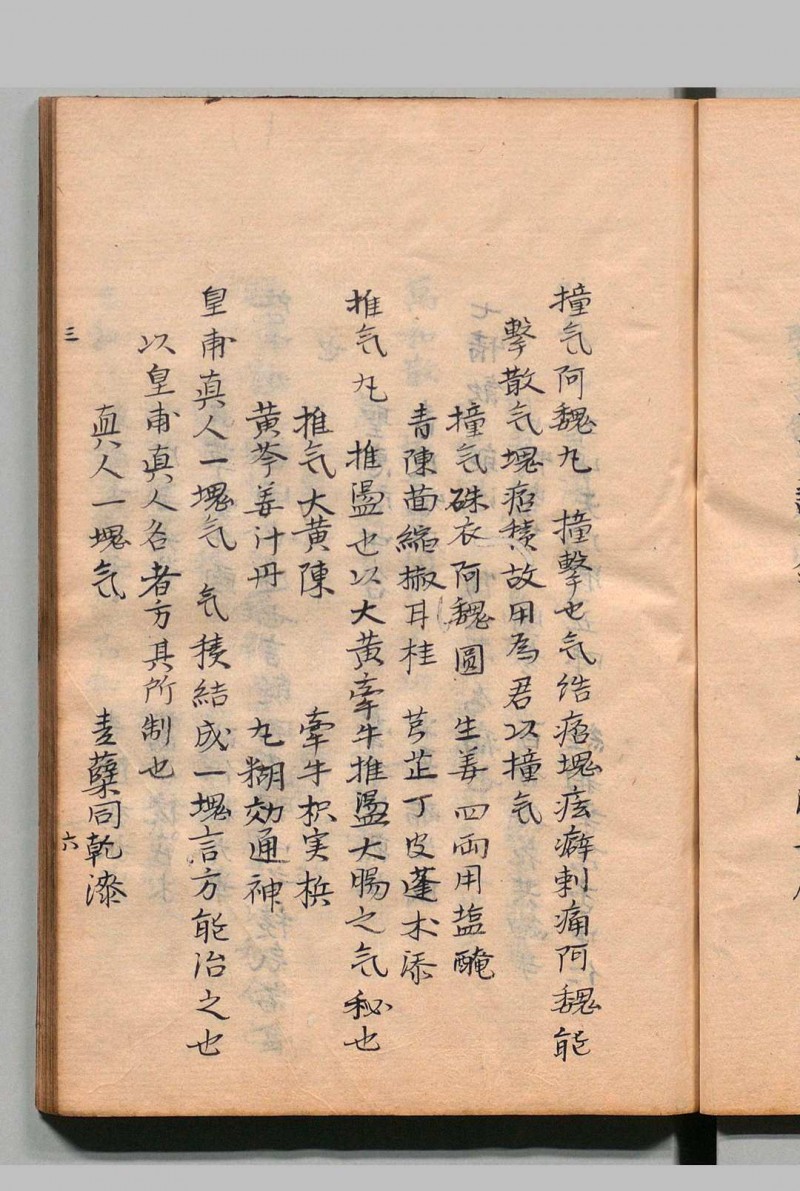 撞气阿魏丸　撞撃也气结痞塊痃癖刺痛阿魏能
撃散气塊痞積故用為君以撞气
撞气硃衣阿魏圓　生姜四両用塩醃
青陳茴縮椒耳桂　芎芷丁皮蓬术添
推气丸　推盪也以大黄牽牛推盪大腸之气秘也
推气大黄陳　牽牛枳実梹
黄芩姜汁丹　丸糊効通神
皇甫真人一塊气　气積結成一塊言方能治之也
以皇甫真人名者方其所制也
真人一塊气　麦蘗同乾漆
三　六